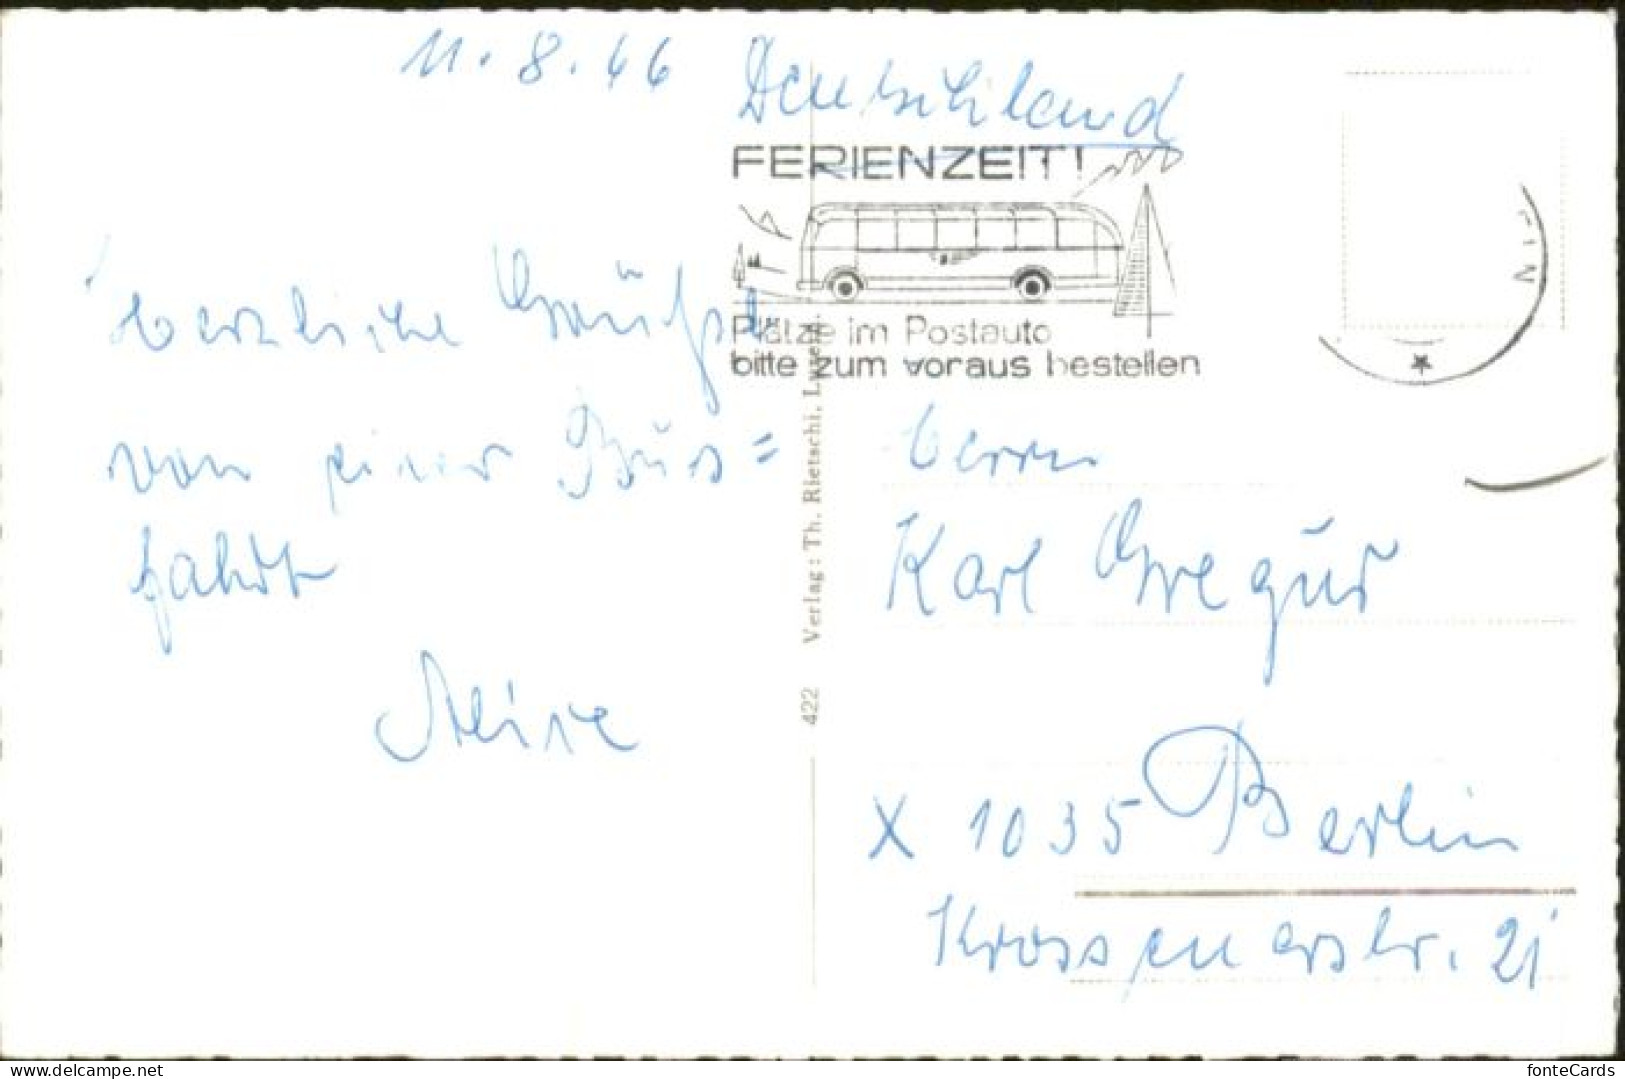 11.8.66 Deutschland
FERIENZEIT!
Plätze im Postauto
bitte zum voraus bestellen
Herzliche Grüße
von einer Bus=
fahrt
422 Verlag: Th. Rietschi, Luzern.
Herrn
Karl Gregur
X 1035 Berlin
Krossenerstr. 21
www.delcampe.net
fonteCards